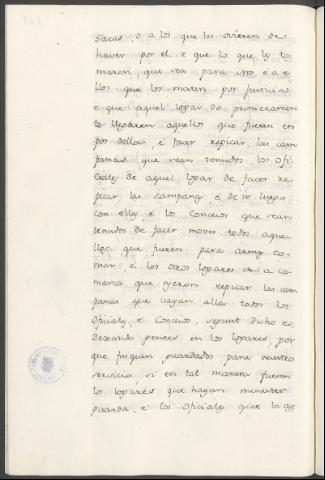 sacas, o a los que los ovieren de
haver por el, e que lo que les to
maren, que sea para uno, e a e
llos que los maten por justicia,
e que aquel logar do primeramen
to llegaren aquellos que fueren en
pos dellos, e facer repicar las cam
panas, que sean tenudos los ofi
ciales de aquel logar de facer re
picar las campanas, e de ir luego
con ellos, e los Concejos que sean
tenudos de facer mover todos aque
llos que fueren para armas to
mar, e los otros logares de la co
marca, que oyeren repicar las cam
panas que vayan alla todos los
Oficiales, e Concejos, segunt dicho es,
dexando gentes en los logares, por
que finquen guardados para nuestro
servicio, si en tal manera fueren
los logares que hayan menester
guarda, e los Oficiales que los